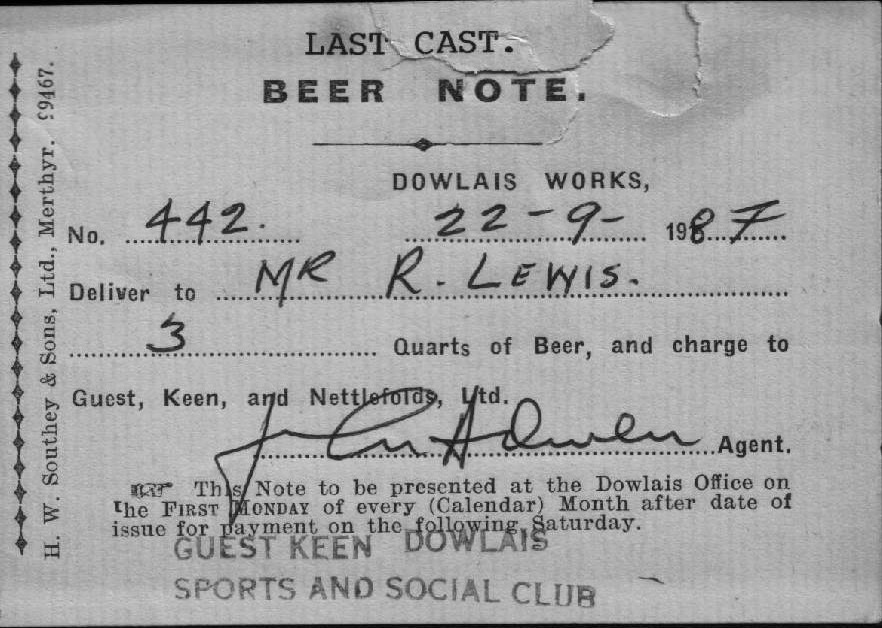 LAST CAST.
BEER NOTE.
DOWLAIS WORKS,
No. 442. 22-9-1987
Deliver to MR R. LEWIS.
3 Quarts of Beer, and charge to
Guest, Keen, and Nettlefolds, Ltd.
Agent.
This Note to be presented at the Dowlais Office on
the FIRST MONDAY of every (Calendar) Month after date of
issue for payment on the following Saturday.
GUEST KEEN DOWLAIS
SPORTS AND SOCIAL CLUB
H. W. Southey & Sons, Ltd., Merthyr. 99467.